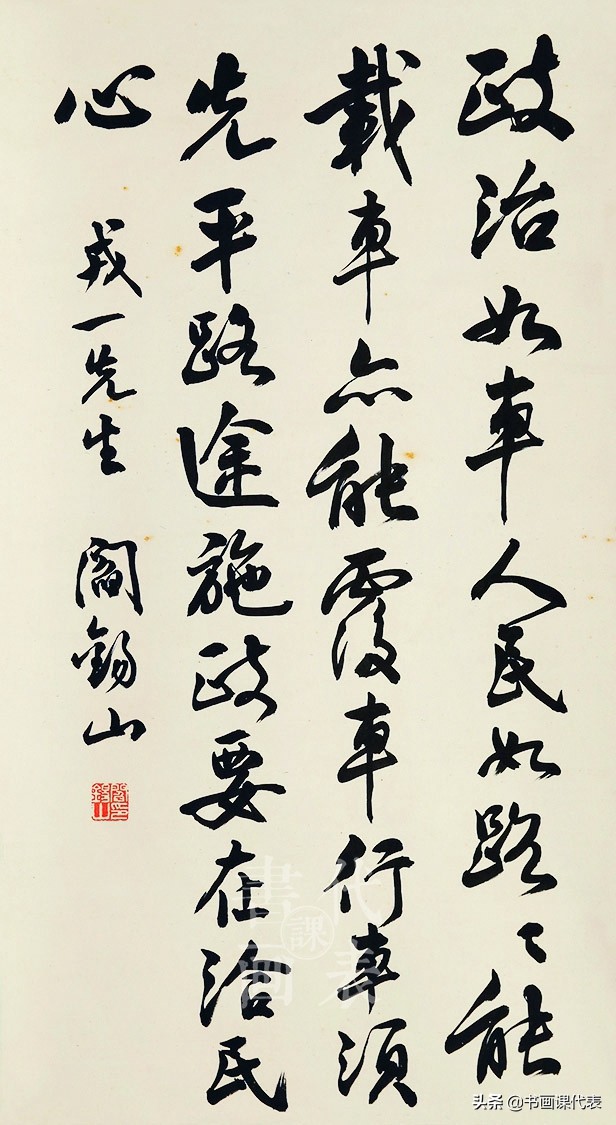 政治如車人民如路々能
載車亦能覆車行車須
先平路途施政要在洽民
心
戎一先生 閻錫山
閻錫山印
書畫課代表
头条 @书画课代表